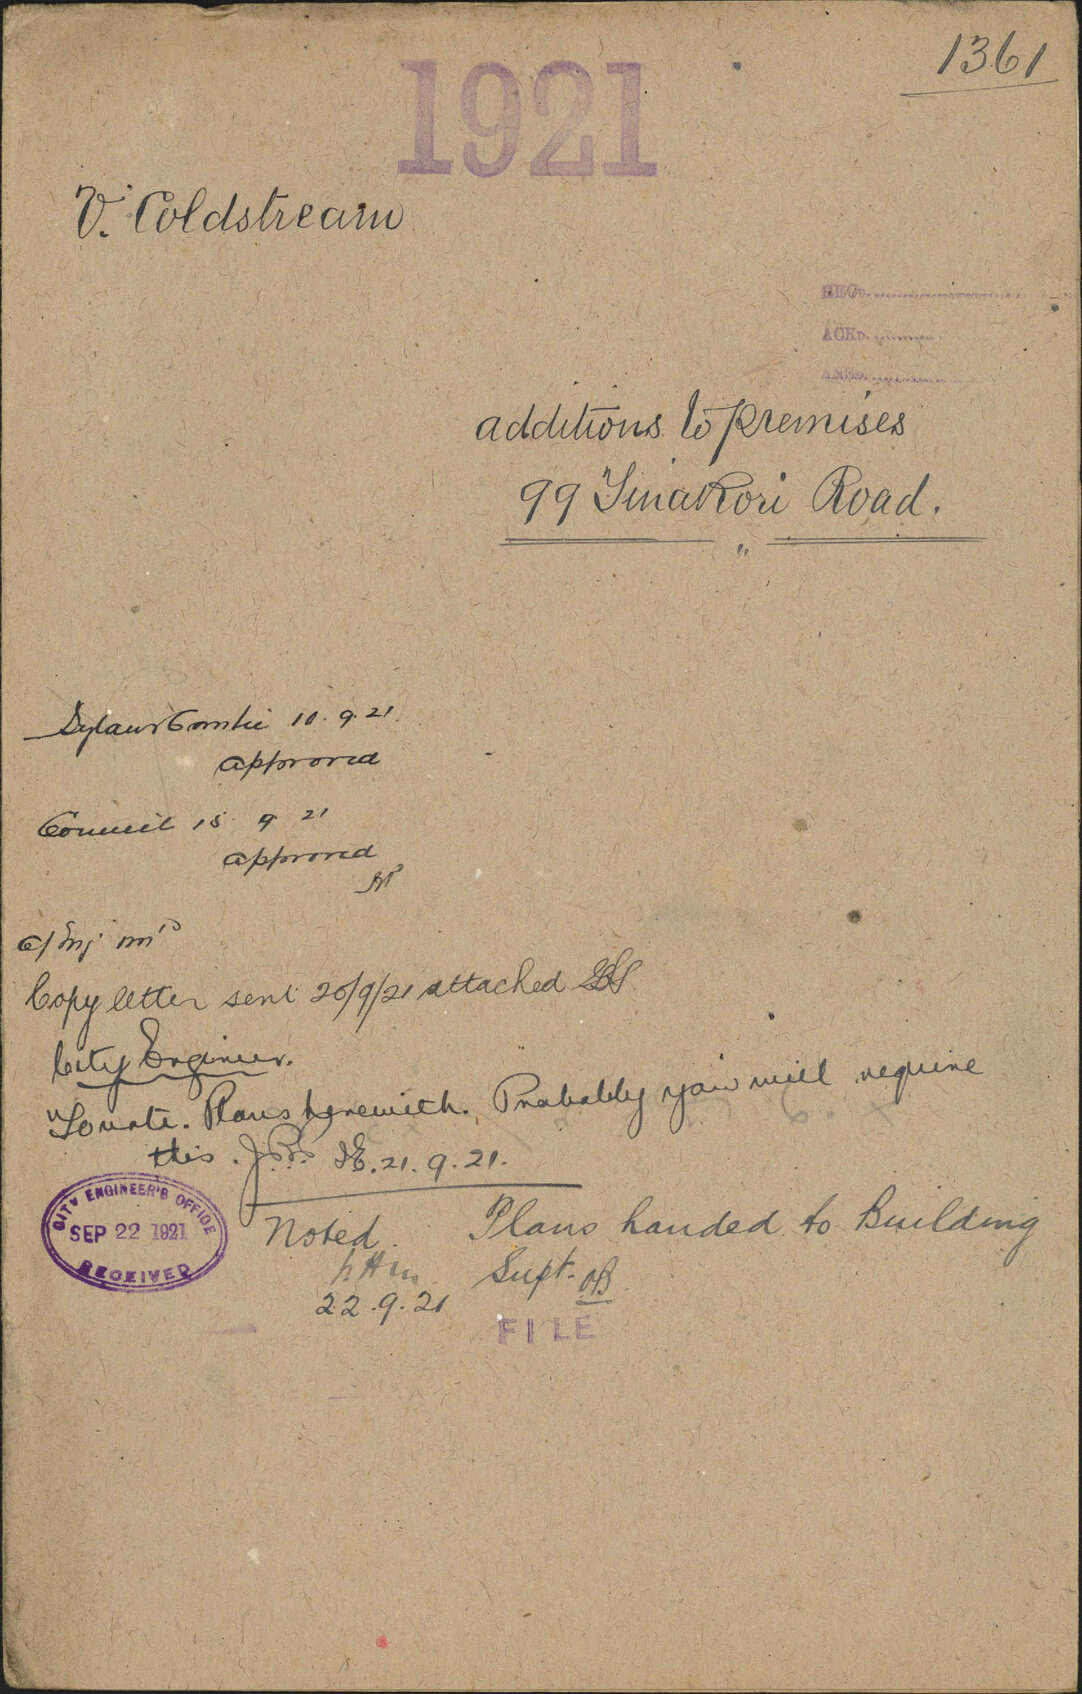 1361
1921
V. Coldstream
RECD.
ACKD.
ANSD.
additions to premises
99 Tinakori Road.
Bylaws Comtee 10.9.21
approved
Council 15 9 21
approved
C/Eng
Copy letter sent 20/9/21 attached
City Engineer.
To note. Plans herewith. Probably you will require
this. 21.9.21.
CITY ENGINEER'S OFFICE
SEP 22 1921
RECEIVED
Noted
22.9.21
Plans handed to Building
Supt.
FILE